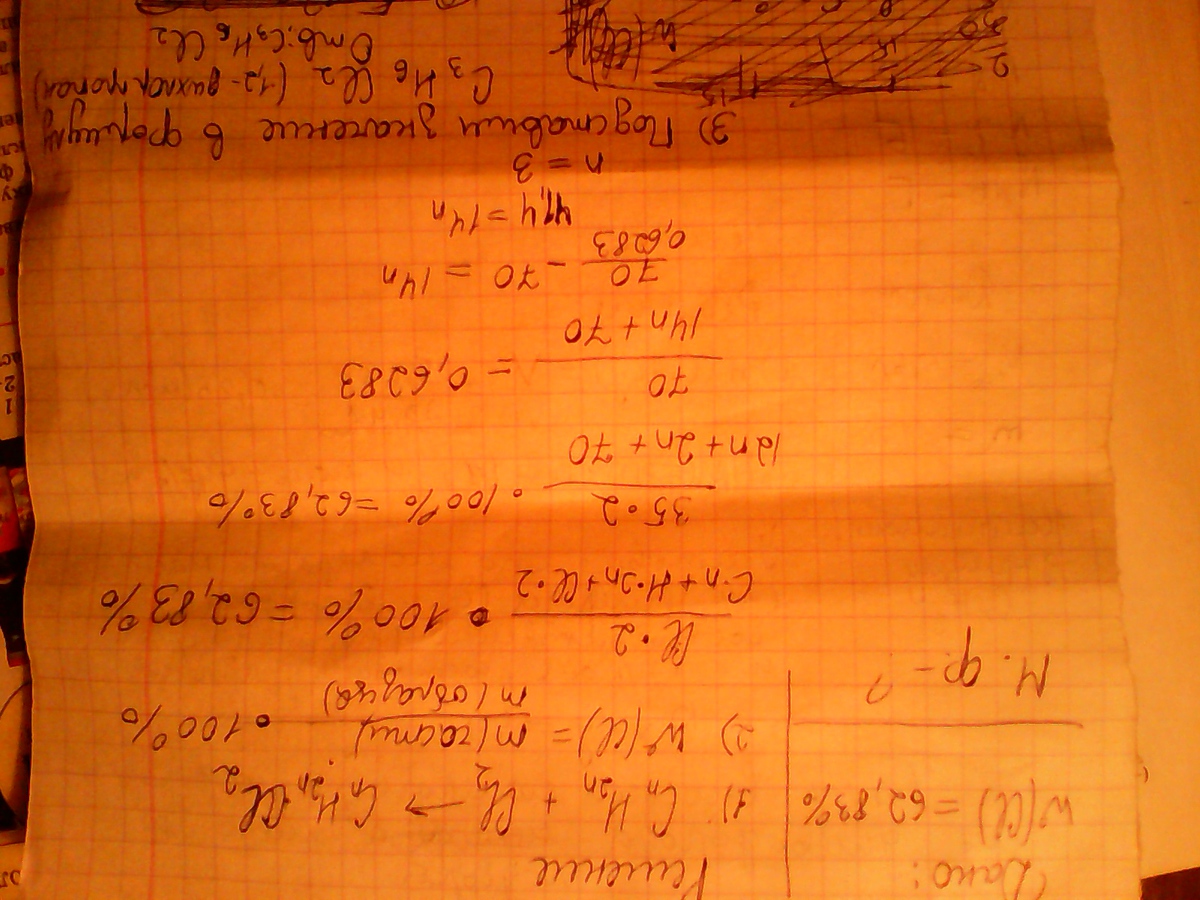 Дано:
W(Cl) = 62,83%
М. ф. - ?
Решение
1) CnH2n + Cl2 → CnH2nCl2
2) W(Cl) = m(части) / m(образца) • 100%
Cl•2 / C•n + H•2n + Cl•2 • 100% = 62,83%
35•2 / 12n + 2n + 70 • 100% = 62,83%
70 / 14n + 70 = 0,6283
70 / 0,6283 - 70 = 14n
41,4 = 14n
n = 3
3) Подставим значение в формулу
C3H6Cl2 (1,2-дихлорпропан)
Отв: C3H6Cl2